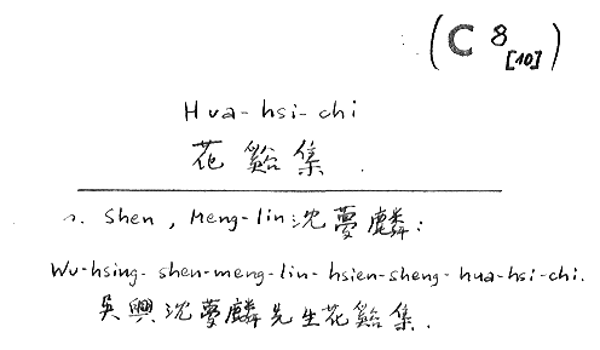 (C 8 [10])
Hua-hsi-chi
花谿集.
s. Shen, Meng-lin 沈夢麟:
Wu-hsing-shen-meng-lin-hsien-sheng-hua-hsi-chi.
吳興沈夢麟先生花谿集.